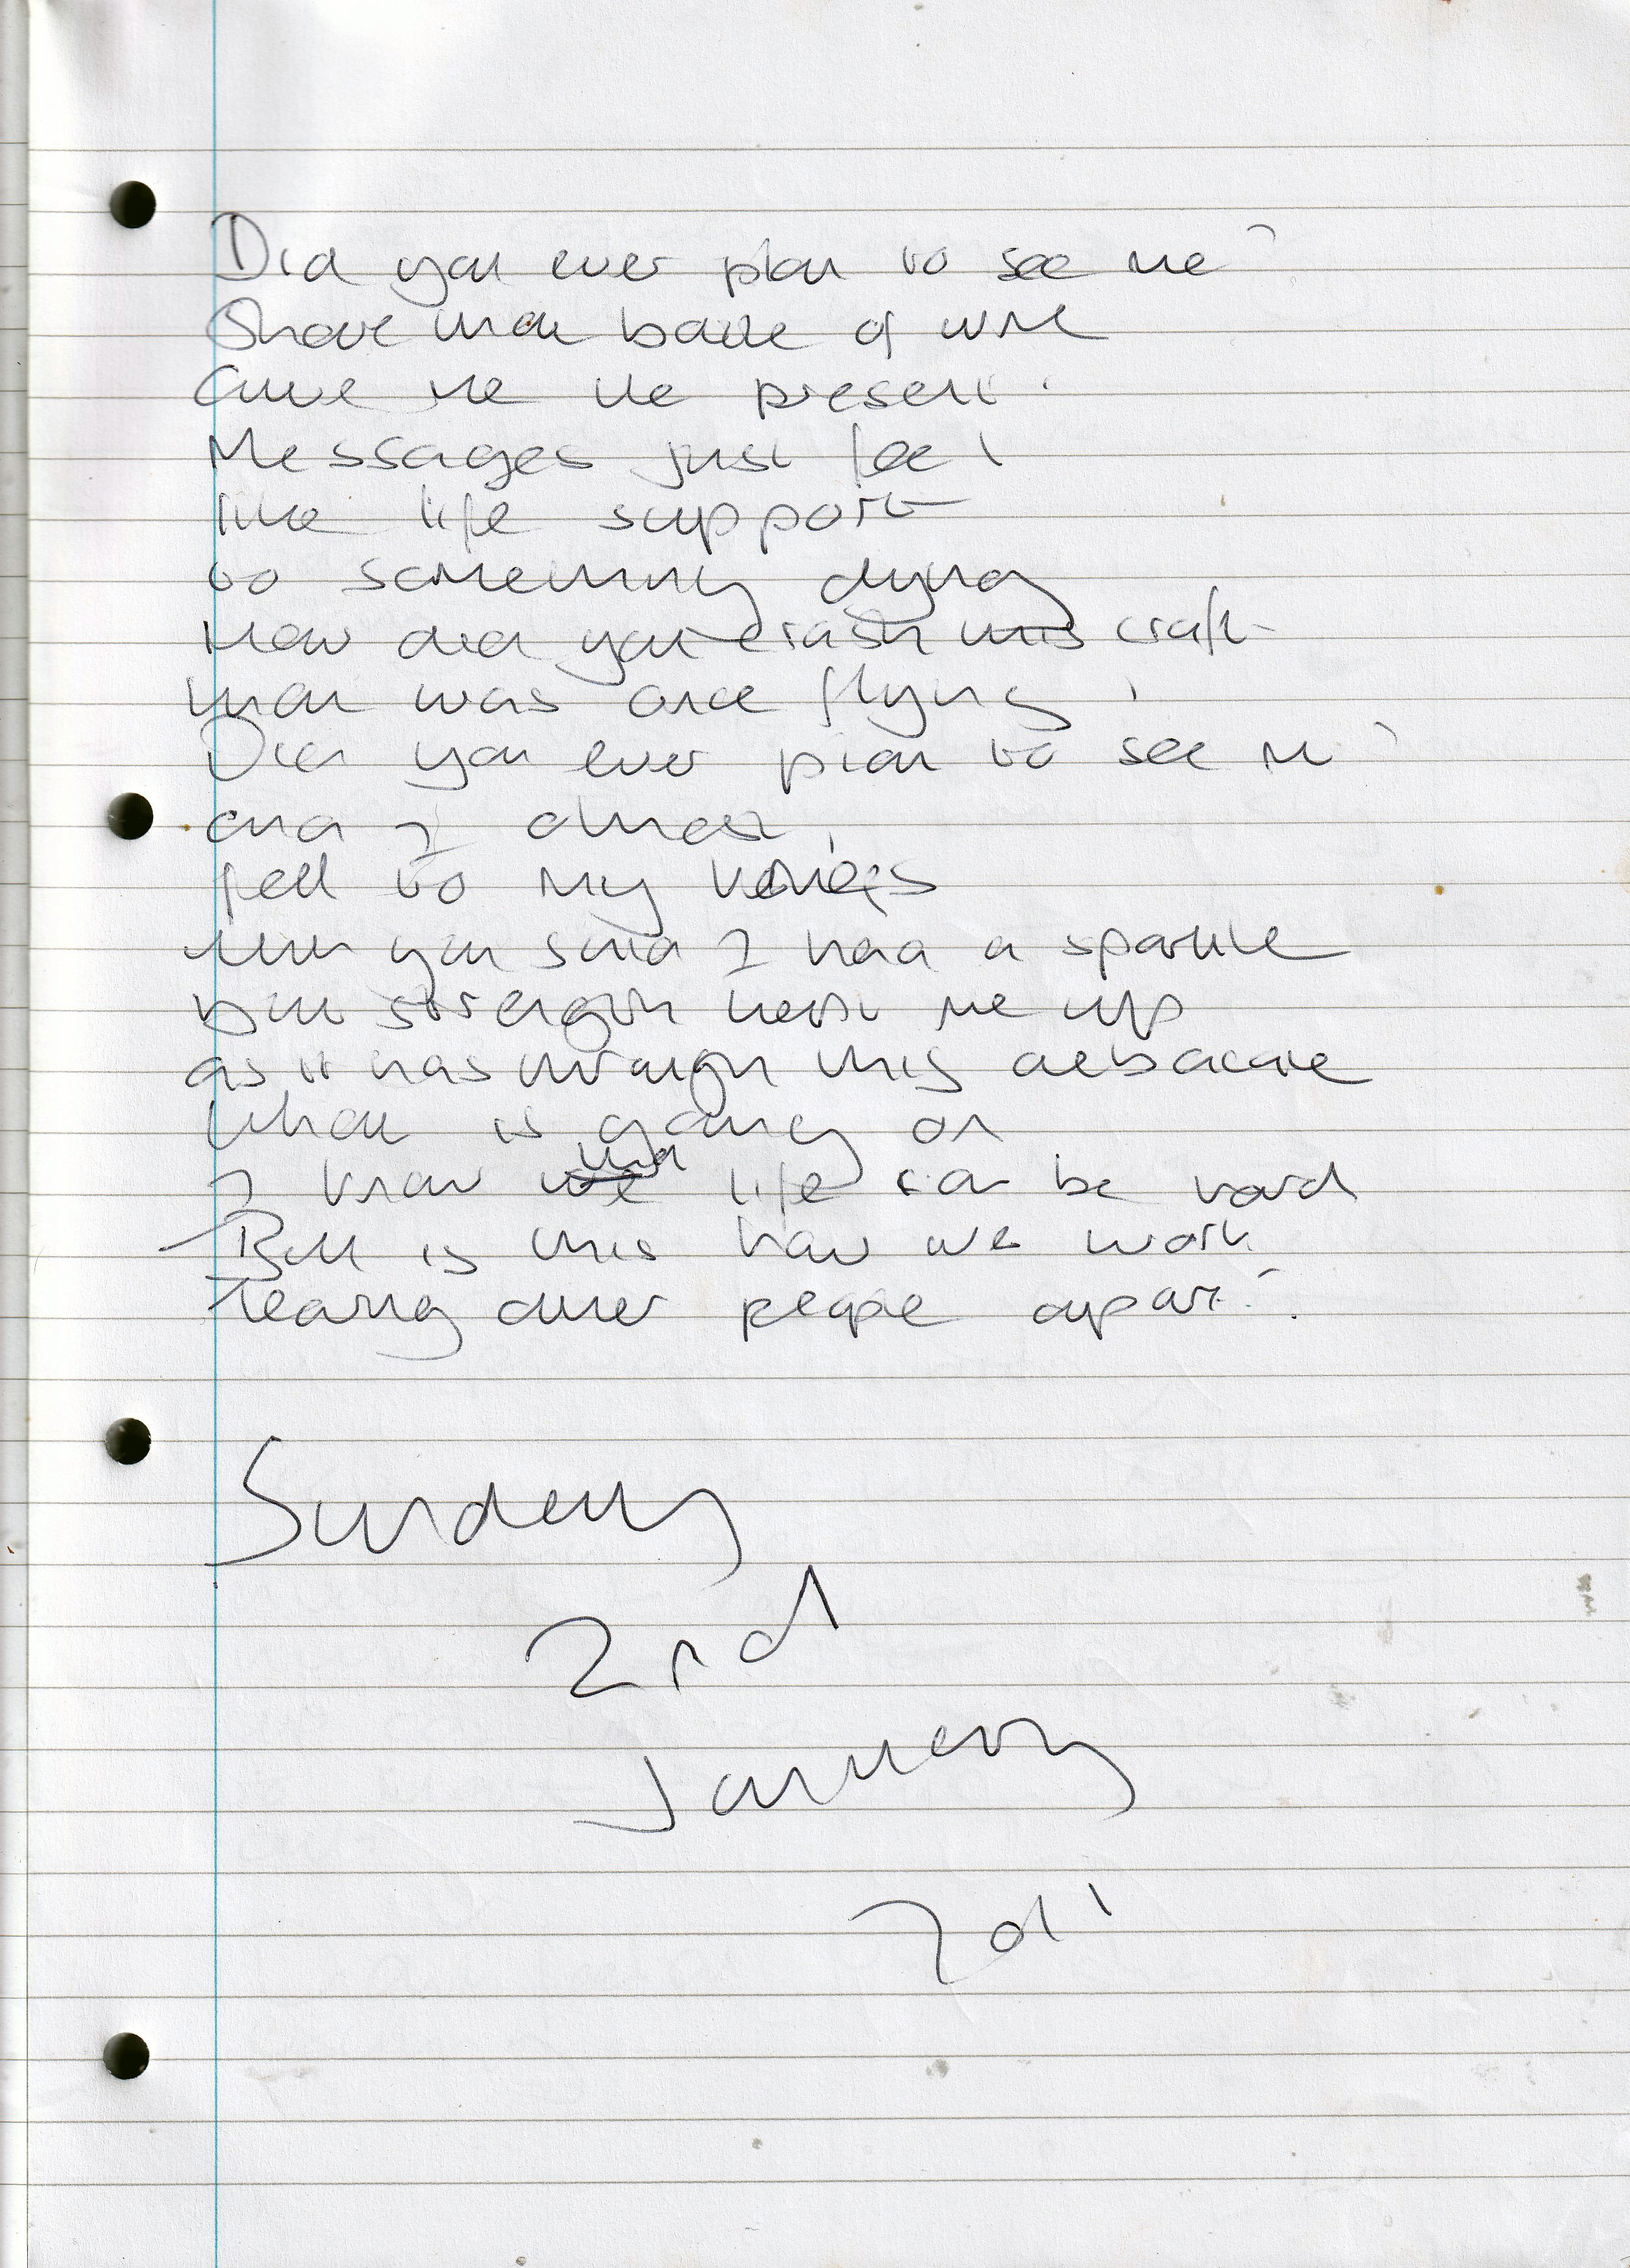 Did you ever plan to see me?
Share that bottle of wine
Give me the present.
Messages just feel
like life support
to something dying
How did you crash this craft
that was once flying,
Did you ever plan to see me?
and I almost,
fell to my knees
When you said I had a sparkle
Your strength kept me up
as it has through this debacle
What is going on
I know that life can be hard
But is this how we work
Tearing other people apart?
Sunday
2nd
January
2011